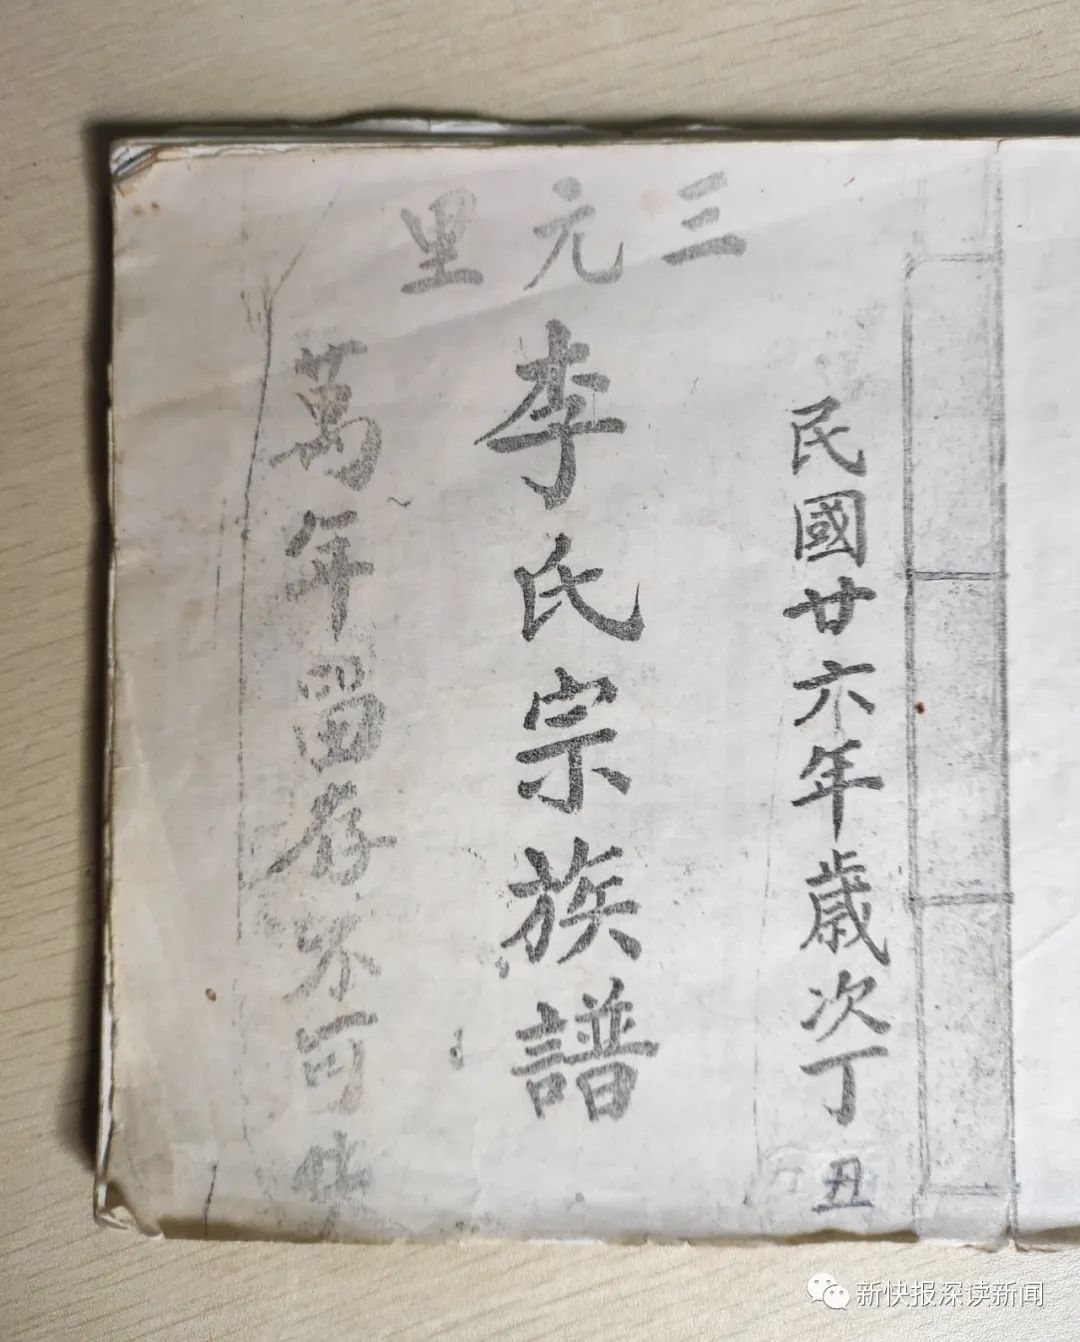 三元里
民國廿六年歲次丁丑
李氏宗族譜
萬年留存不可
新快报深读新闻